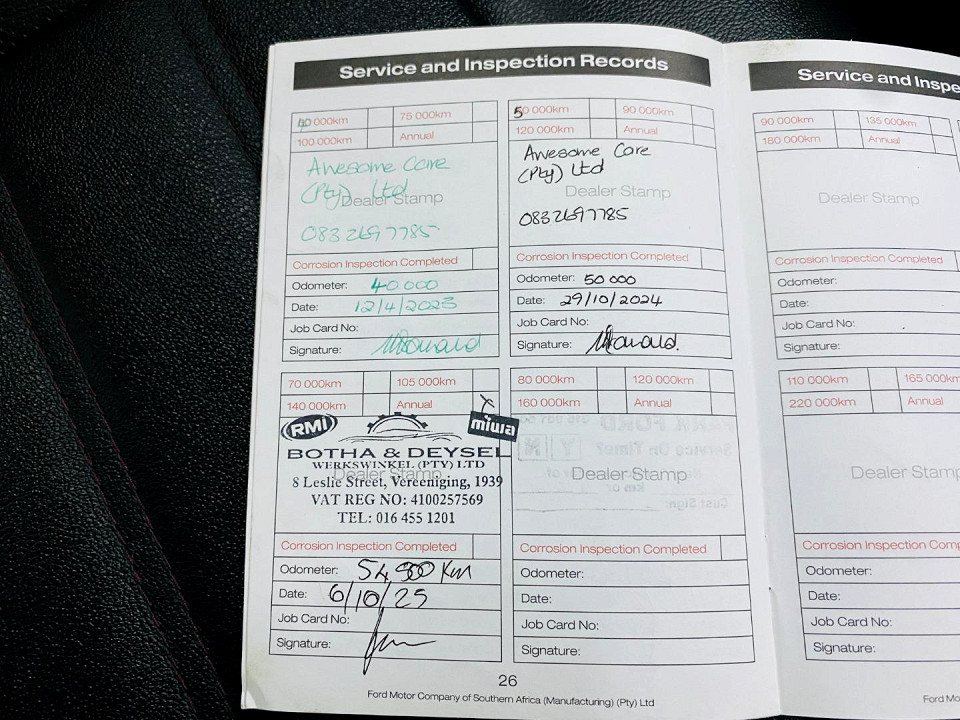 Service and Inspection Records
40 000km 75 000km
100 000km Annual
Awesome Care
(Pty) Ltd
Dealer Stamp
083 269 7785
Corrosion Inspection Completed
Odometer: 40 000
Date: 12/4/2023
Job Card No:
Signature:
50 000km 90 000km
120 000km Annual
Awesome Care
(Pty) Ltd
Dealer Stamp
083 269 7785
Corrosion Inspection Completed
Odometer: 50 000
Date: 29/10/2024
Job Card No:
Signature:
70 000km 105 000km
140 000km Annual X
RMI miwa
BOTHA & DEYSEL
WERKSWINKEL (PTY) LTD
Dealer Stamp
8 Leslie Street, Vereeniging, 1939
VAT REG NO: 4100257569
TEL: 016 455 1201
Corrosion Inspection Completed
Odometer: 54 900 Km
Date: 6/10/25
Job Card No:
Signature:
80 000km 120 000km
160 000km Annual
Dealer Stamp
Corrosion Inspection Completed
Odometer:
Date:
Job Card No:
Signature:
26
Ford Motor Company of Southern Africa (Manufacturing) (Pty) Ltd
Service and Inspe
90 000km 135 000km
180 000km Annual
Dealer Stamp
Corrosion Inspection Completed
Odometer:
Date:
Job Card No:
Signature:
110 000km 165 000km
220 000km Annual
Dealer Stamp
Corrosion Inspection Comp
Odometer:
Date:
Job Card No:
Signature:
Ford Mo